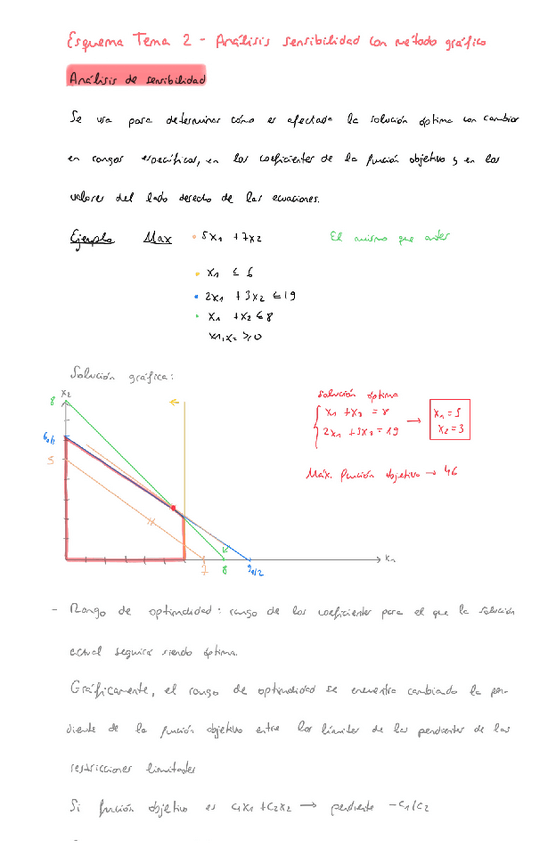 Esquema Tema 2 - Análisis sensibilidad con método gráfico
Análisis de sensibilidad
Se usa para determinar cómo es afectada la solución óptima con cambios
en rangos específicos, en los coeficientes de la función objetivo y en los
valores del lado derecho de las ecuaciones.
Ejemplo Max 5x1 + 7x2 El mismo que antes
x1 ≤ 6
2x1 + 3x2 ≤ 19
x1 + x2 ≤ 8
x1, x2 ≥ 0
Solución gráfica:
solución óptima
x1 + x2 = 8 → x1 = 5
2x1 + 3x2 = 19 x2 = 3
Máx. función objetivo → 46
x2
8
5
7
8
x1
- Rango de optimalidad: rango de los coeficientes para el que la solución
actual seguirá siendo óptima.
Gráficamente, el rango de optimalidad se encuentra cambiando la pen-
diente de la función objetivo entre los límites de las pendientes de las
restricciones limitades
Si función objetivo es c1x1 + c2x2 → pendiente -c1/c2